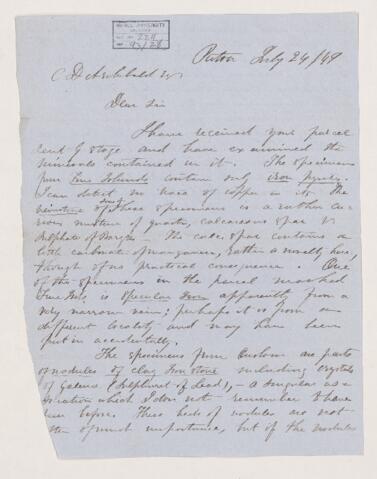 McGILL UNIVERSITY
ACC. NO. 221
REF. 92/28
Pictou July 24/49
C D Archibald Esq
Dear Sir
I have received your parcel
sent by stage and have examined the
minerals contained in it. The specimens
from Five Islands contain only iron pyrites.
I can detect no trace of copper in it. The
veinstone of these specimens is a rather cu-
rious mixture of quartz, calcareous spar &
Sulphate of Barytes - The calc. spar contains a
little carbonate of manganese, rather a novelty here,
though of no practical consequence. One
of the specimens in the parcel marked
Five Isds, is Specular Iron apparently from a
very narrow vein; perhaps it is from a
different locality and may have been
put in accidentally.
The specimens from are parts
of nodules of clay Iron stone including crystals
of Galena (Sulphuret of Lead), - a singular as-
sociation which I do not remember to have
seen before. These beds of nodules are not
often of much importance, but if the nodules